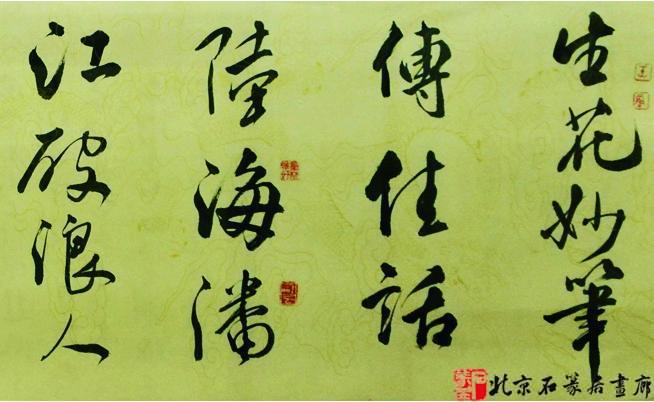 生花妙筆
傳佳話
陸海潘
江破浪人
北京石篆居畫廊